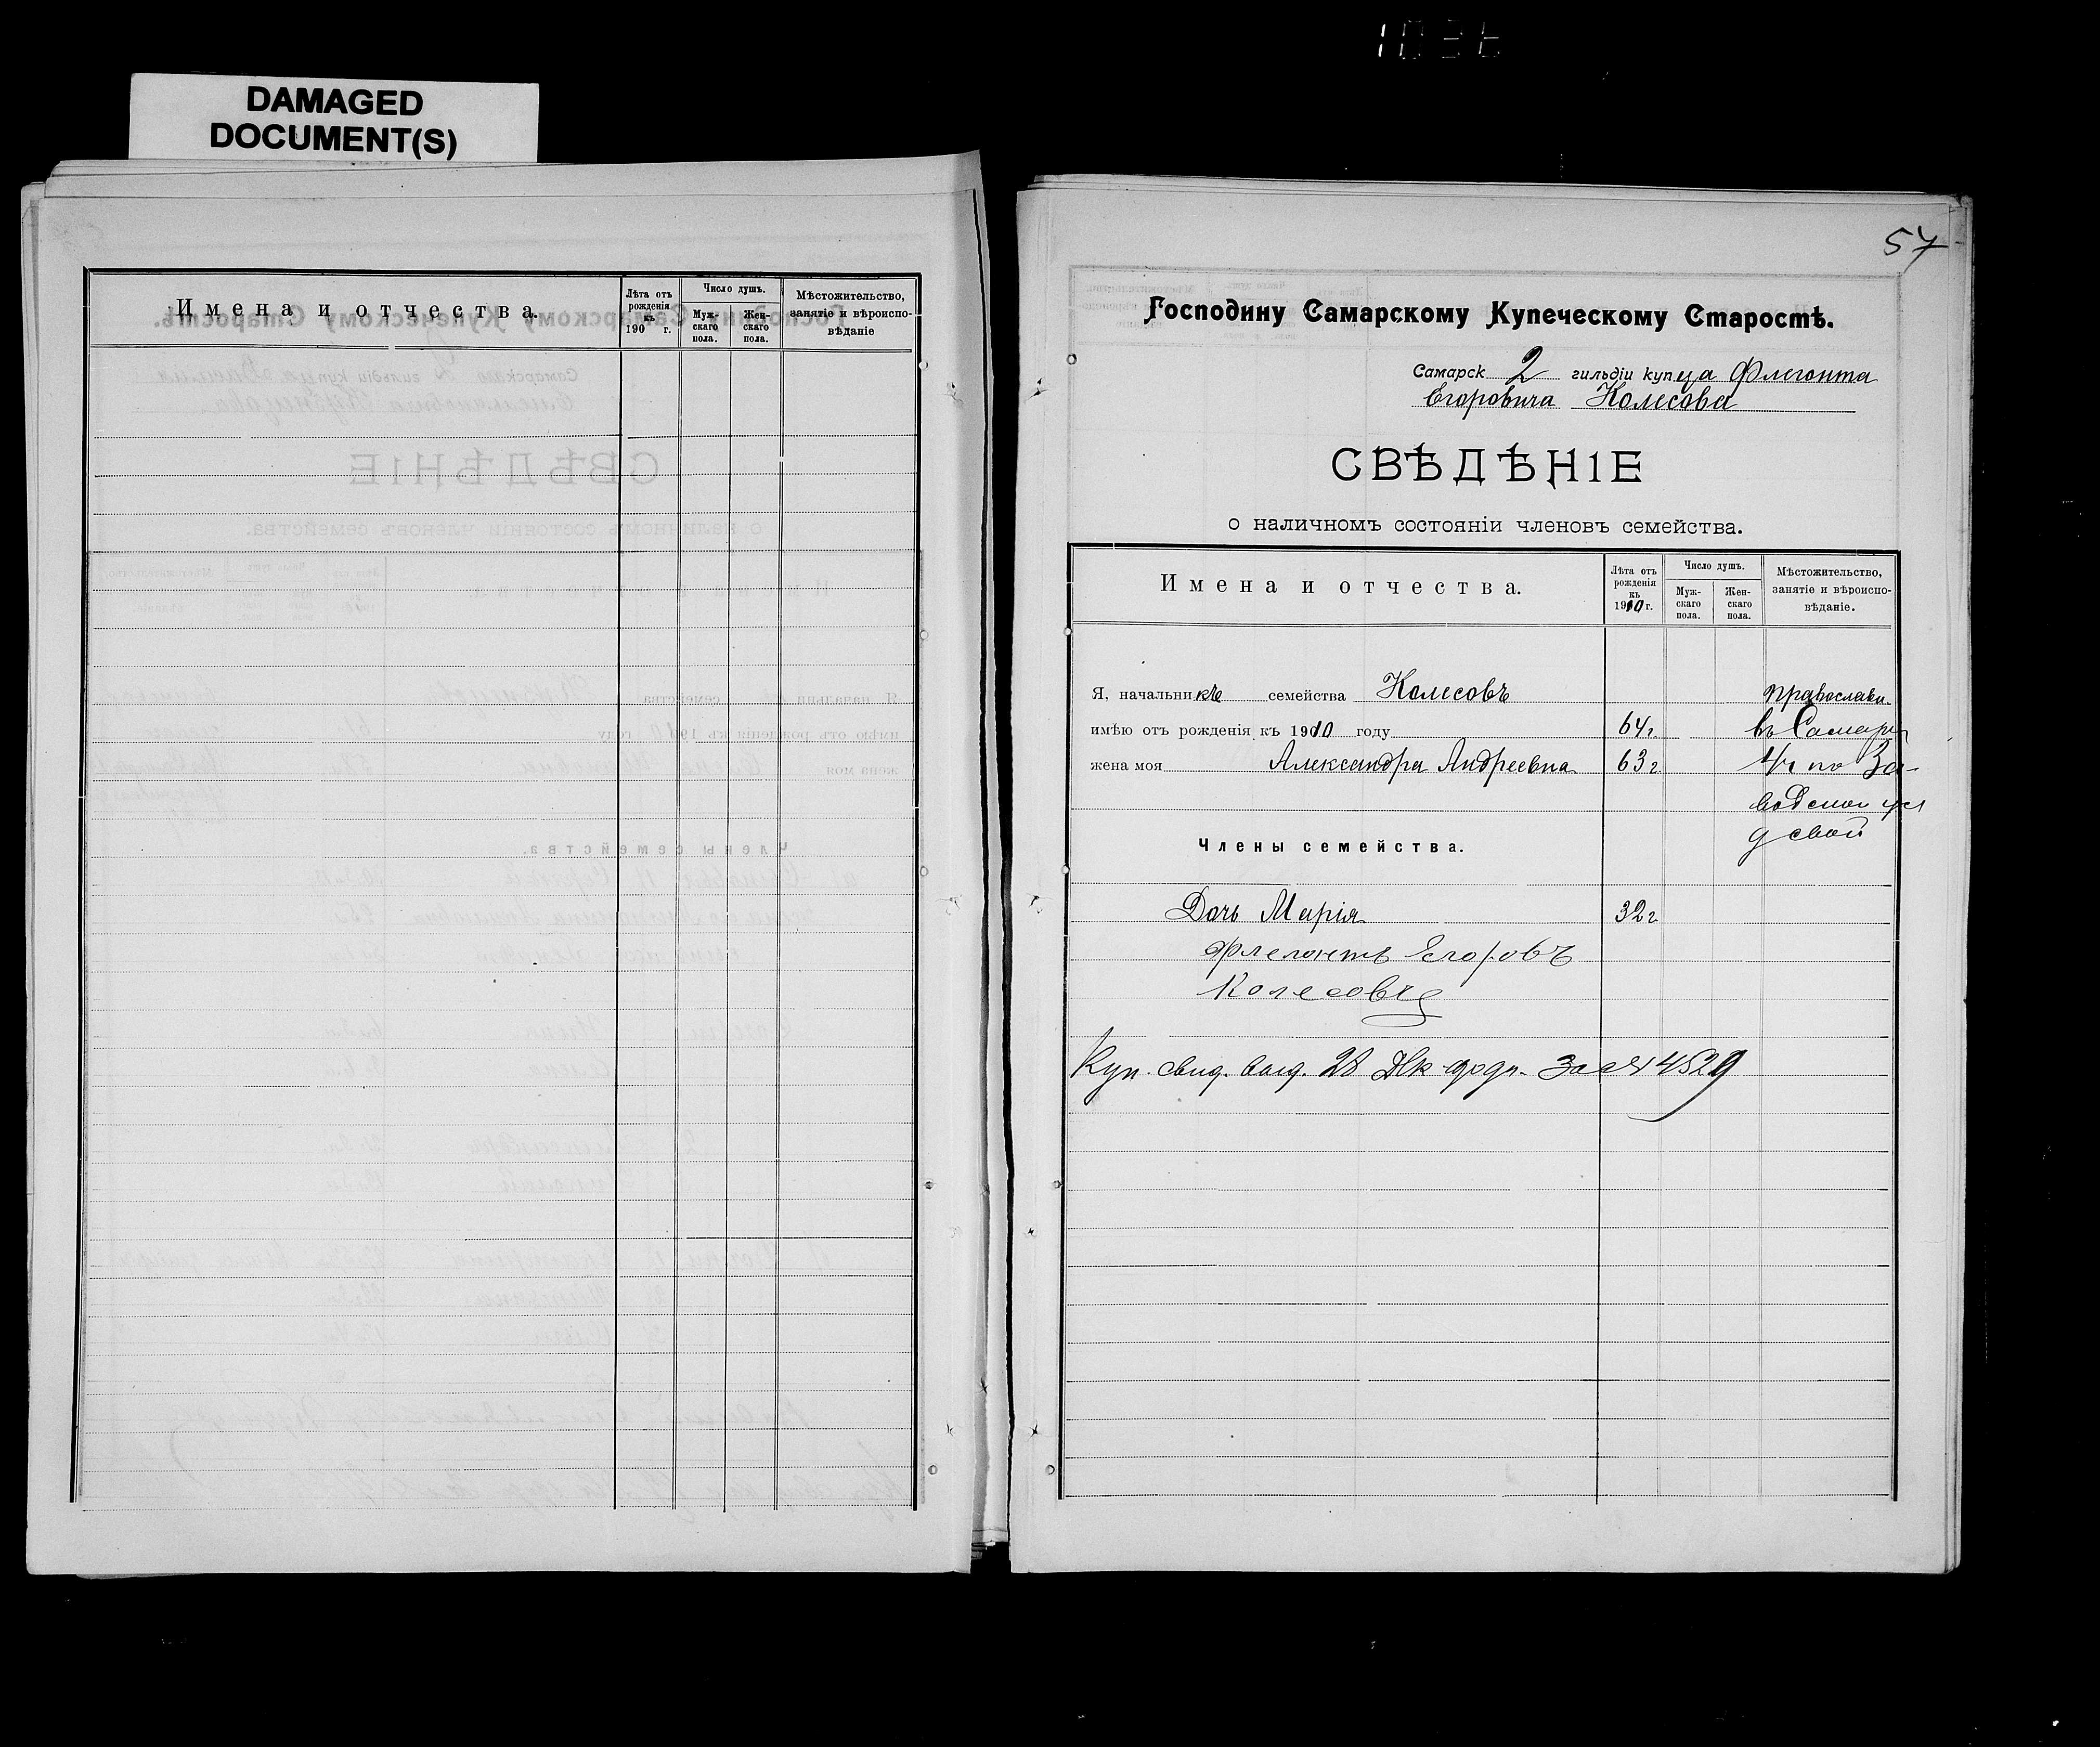 DAMAGED
DOCUMENT(S)
Имена и отчества.
Лѣта отъ рожденія къ 190 г.
Число душъ.
Муж-скаго пола.
Жен-скаго пола.
Мѣстожительство, занятіе и вѣроиспо-вѣданіе
57
Господину Самарскому Купеческому Старостѣ.
Самарск 2 гильдіи купца Флегонта
Егоровича Колесова
СВѢДѢНІЕ
о наличномъ состояніи членовъ семейства.
Имена и отчества.
Лѣта отъ рожденія къ 1910 г.
Число душъ.
Муж-скаго пола.
Жен-скаго пола.
Мѣстожительство, занятіе и вѣроиспо-вѣданіе.
Я, начальникъ семейства Колесовъ православн.
имѣю отъ рожденія къ 1910 году 64 г. въ Самарѣ
жена моя Александра Андреевна 63 г. 4 ч по За-
водской ул
д свой
Члены семейства.
Дочь Марія 32 г.
Флегонтъ Егоровъ
Колесовъ
Куп. свид. выд. 28 Дек 4529